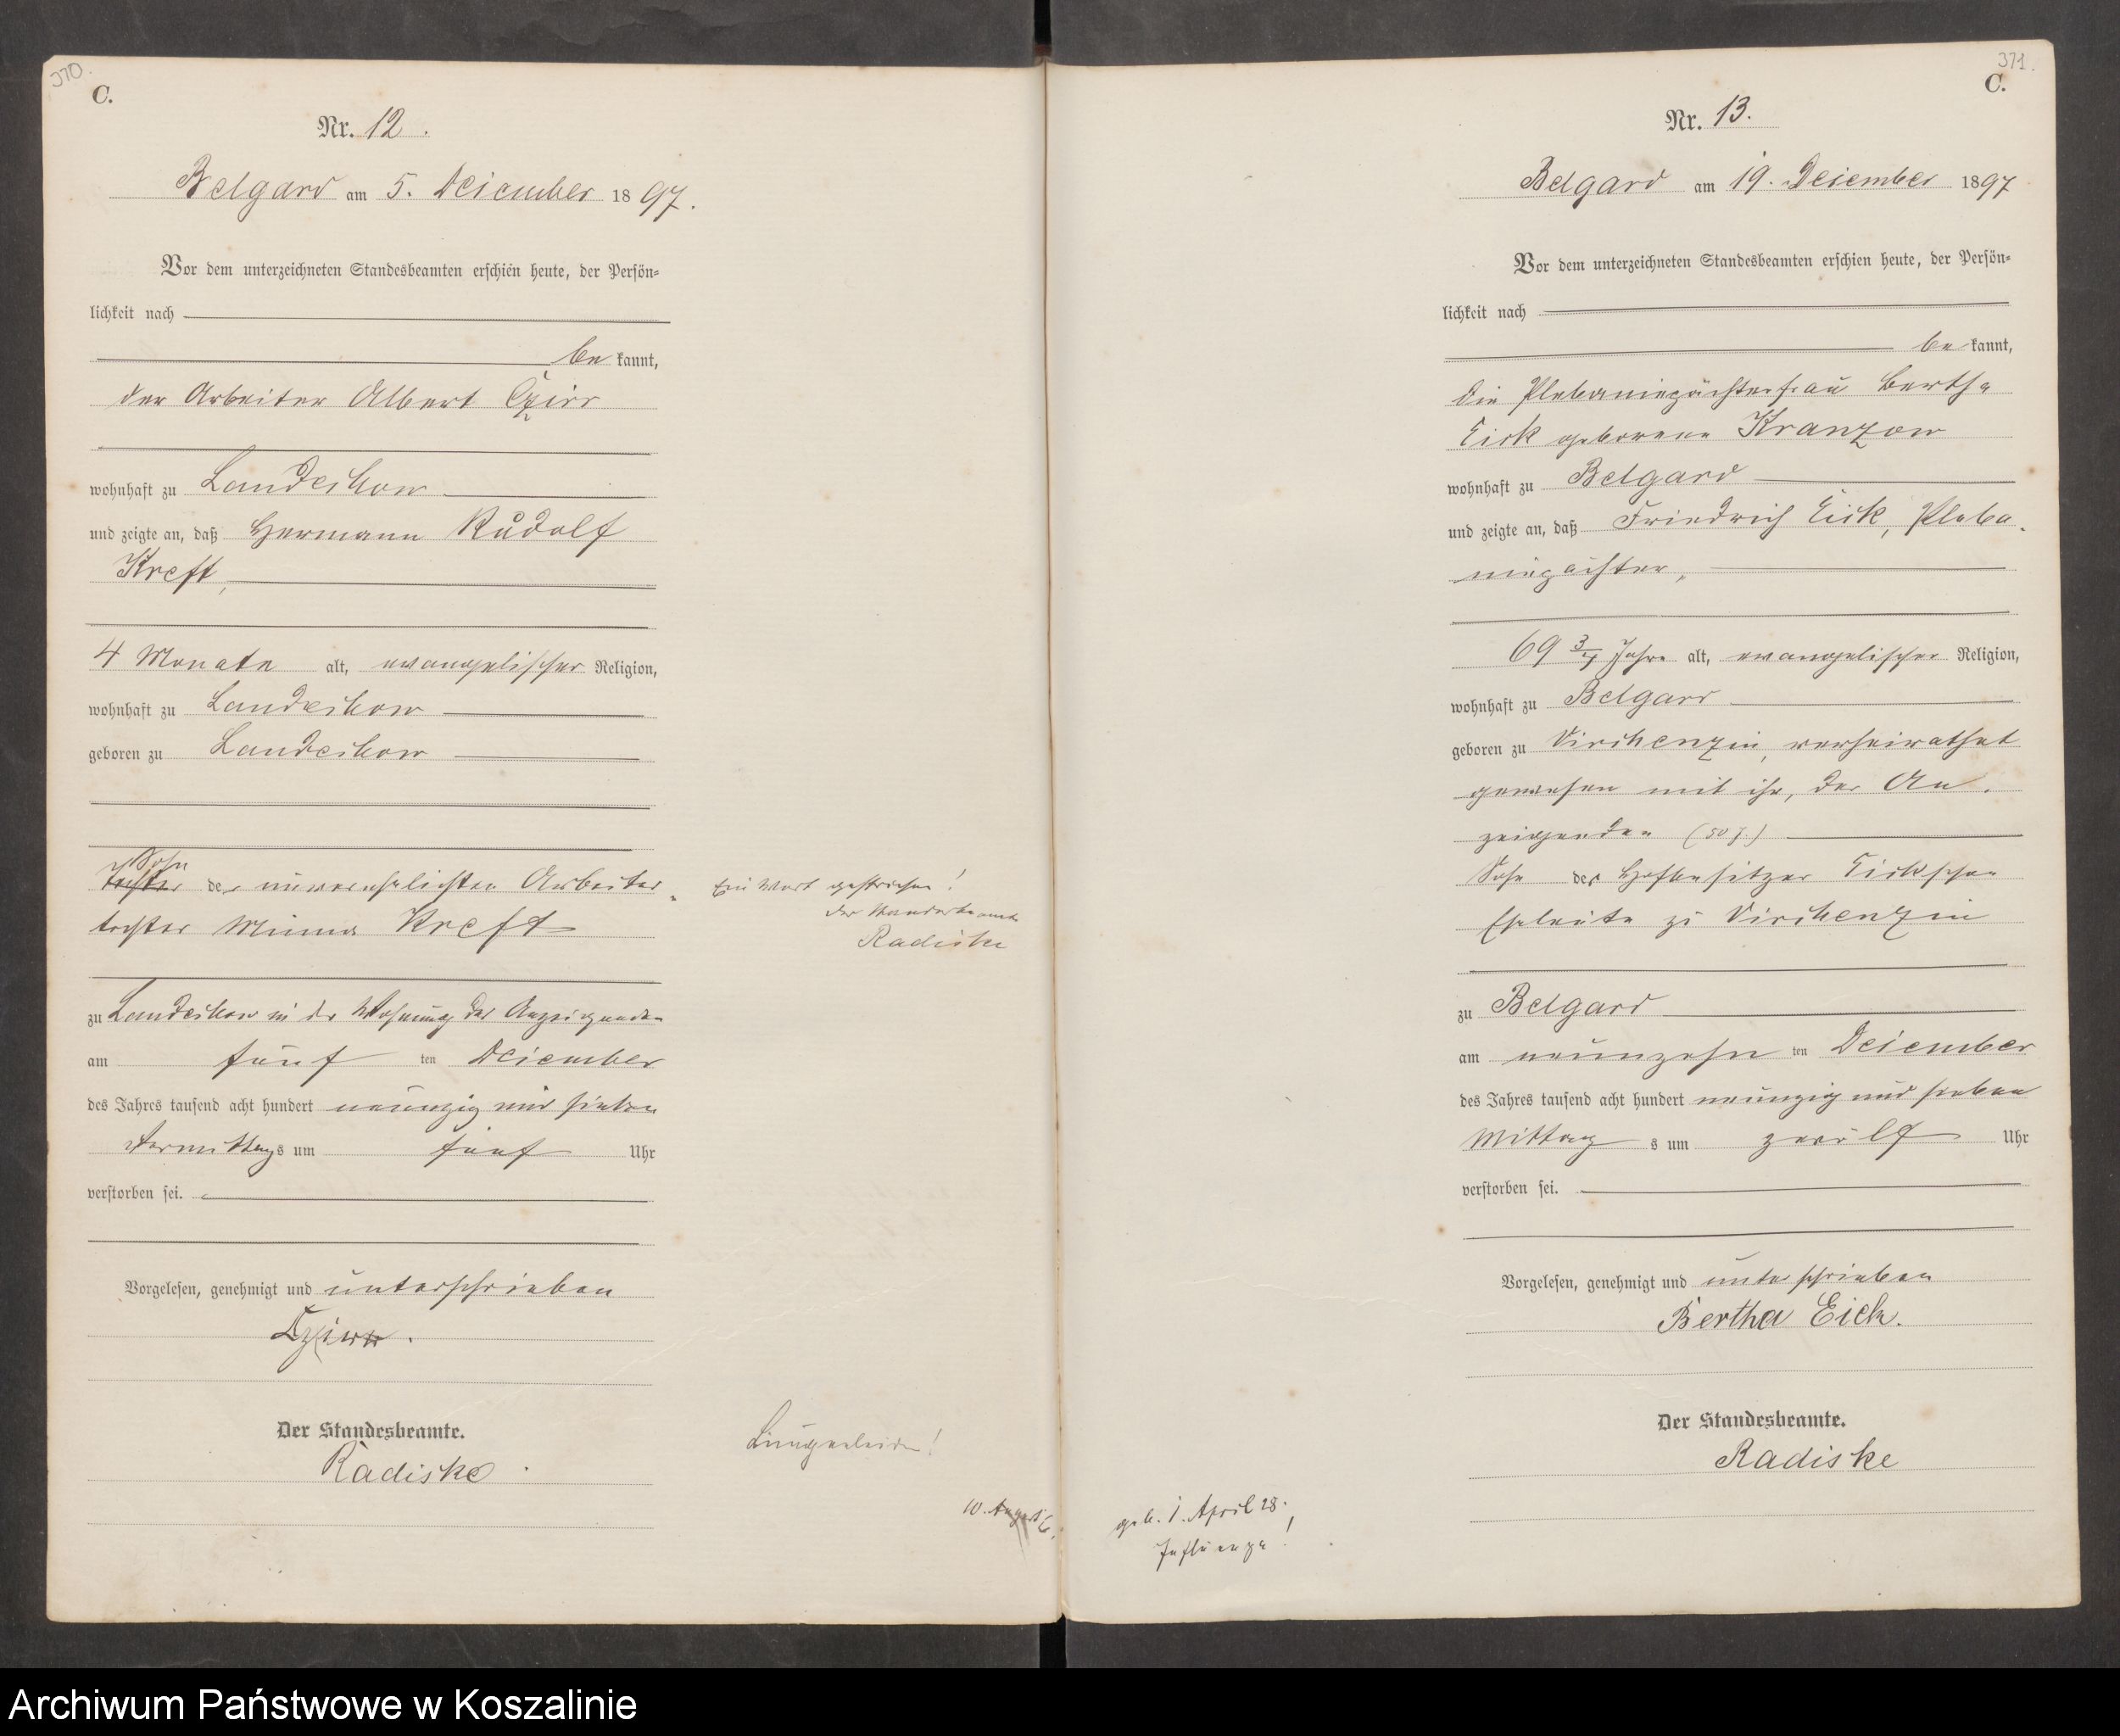 370.
C.
Nr. 12.
Belgard am 5. December 1897.
Vor dem unterzeichneten Standesbeamten erschien heute, der Persön-
lichkeit nach
bekannt,
der Arbeiter Albert
wohnhaft zu Landechow
und zeigte an, daß Hermann Rudolf
Kreft,
4 Monate alt, evangelischer Religion,
wohnhaft zu Landechow
geboren zu Landechow
Sohn
Tochter der unverehelichten Arbeiter-
tochter Minna Kreft
zu Landechow in der Wohnung des Anzeigenden
am fünf ten December
des Jahres tausend acht hundert neunzig und sieben
Vormittags um fünf Uhr
verstorben sei.
Vorgelesen, genehmigt und unterschrieben
Der Standesbeamte.
Radiske
Ein Wort gestrichen!
der Standesbeamte
Radiske
Lungenleiden!
10. August
371.
C.
Nr. 13.
Belgard am 19. December 1897
Vor dem unterzeichneten Standesbeamten erschien heute, der Persön-
lichkeit nach
bekannt,
die Plebaniepächterfrau Bertha
Eick geborene Kranzow
wohnhaft zu Belgard
und zeigte an, daß Friedrich Eick, Pleba-
niepächter,
69 3/4 Jahre alt, evangelischer Religion,
wohnhaft zu Belgard
geboren zu Virchenzin, verheirathet
gewesen mit ihr, der An-
zeigenden (50 J.)
Sohn der Hofbesitzer Eickschen
Eheleute zu Virchenzin
zu Belgard
am neunzehn ten December
des Jahres tausend acht hundert neunzig und sieben
Mittags um zwölf Uhr
verstorben sei.
Vorgelesen, genehmigt und unterschrieben
Bertha Eick.
Der Standesbeamte.
Radiske
geb. 1. April 28.
Influenza!
Archiwum Państwowe w Koszalinie